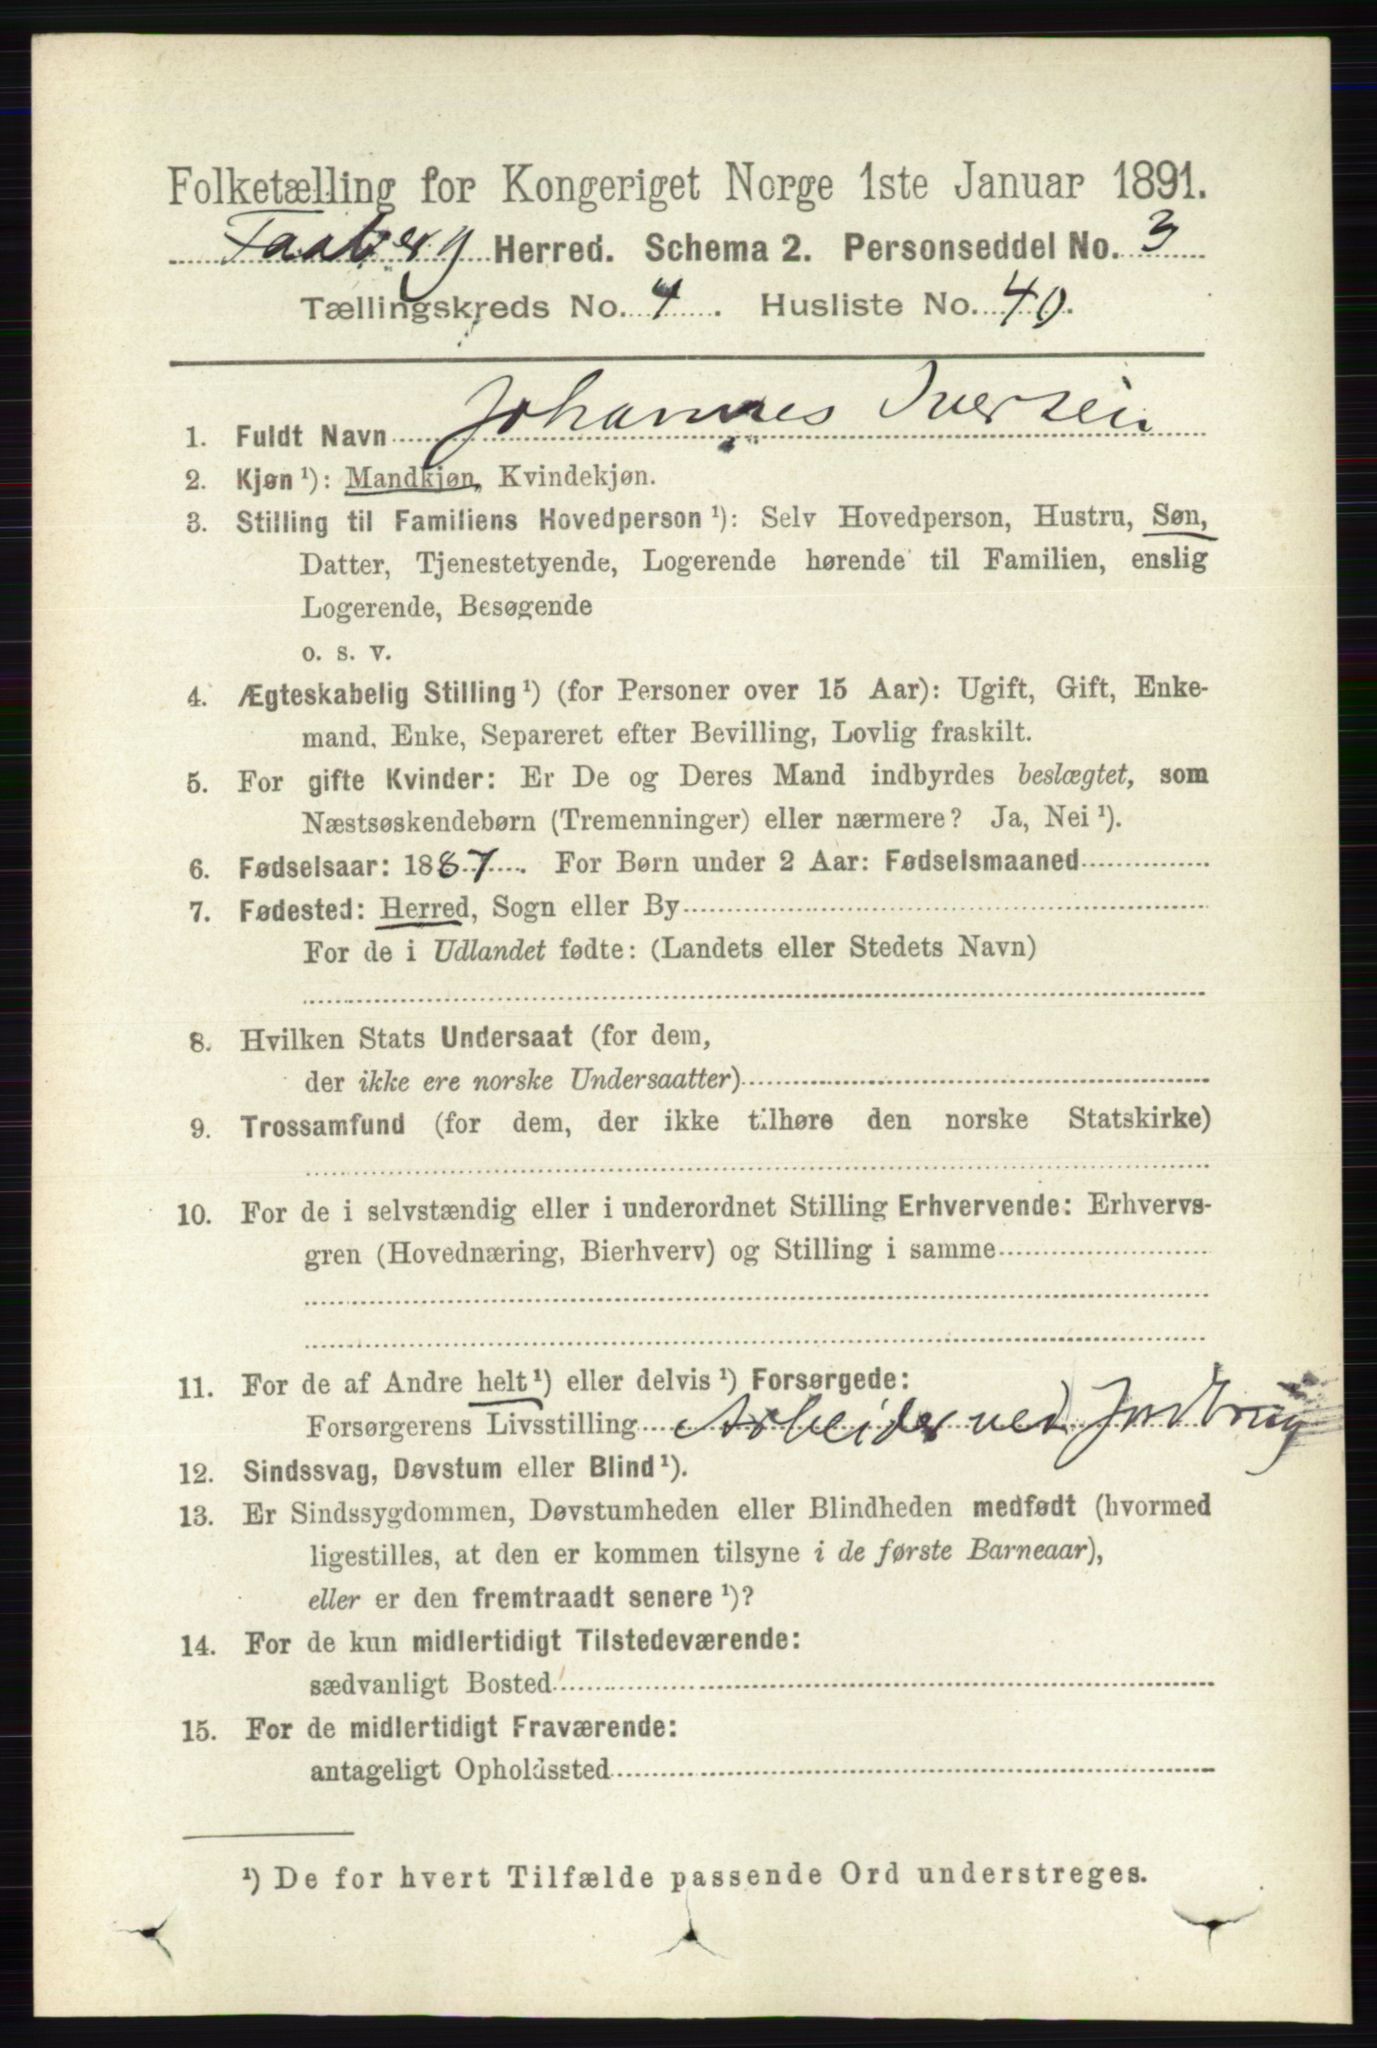 Folketælling for Kongeriget Norge 1ste Januar 1891.
Faaberg Herred. Schema 2. Personseddel No. 3
Tællingskreds No. 4. Husliste No. 40.
1. Fuldt Navn Johannes Iversen
2. Kjøn ¹): Mandkjøn, Kvindekjøn.
3. Stilling til Familiens Hovedperson ¹): Selv Hovedperson, Hustru, Søn,
Datter, Tjenestetyende, Logerende hørende til Familien, enslig
Logerende, Besøgende
o. s. v.
4. Ægteskabelig Stilling ¹) (for Personer over 15 Aar): Ugift, Gift, Enke-
mand, Enke, Separeret efter Bevilling, Lovlig fraskilt.
5. For gifte Kvinder: Er De og Deres Mand indbyrdes beslægtet, som
Næstsøskendebørn (Tremenninger) eller nærmere? Ja, Nei ¹).
6. Fødselsaar: 1887. For Børn under 2 Aar: Fødselsmaaned
7. Fødested: Herred, Sogn eller By
For de i Udlandet fødte: (Landets eller Stedets Navn)
8. Hvilken Stats Undersaat (for dem,
der ikke ere norske Undersaatter)
9. Trossamfund (for dem, der ikke tilhøre den norske Statskirke)
10. For de i selvstændig eller i underordnet Stilling Erhvervende: Erhvervs-
gren (Hovednæring, Bierhverv) og Stilling i samme
11. For de af Andre helt ¹) eller delvis ¹) Forsørgede:
Forsørgerens Livsstilling Arbeider ved Jordbrug
12. Sindssvag, Døvstum eller Blind ¹).
13. Er Sindssygdommen, Døvstumheden eller Blindheden medfødt (hvormed
ligestilles, at den er kommen tilsyne i de første Barneaar),
eller er den fremtraadt senere ¹)?
14. For de kun midlertidigt Tilstedeværende:
sædvanligt Bosted
15. For de midlertidigt Fraværende:
antageligt Opholdssted
¹) De for hvert Tilfælde passende Ord understreges.